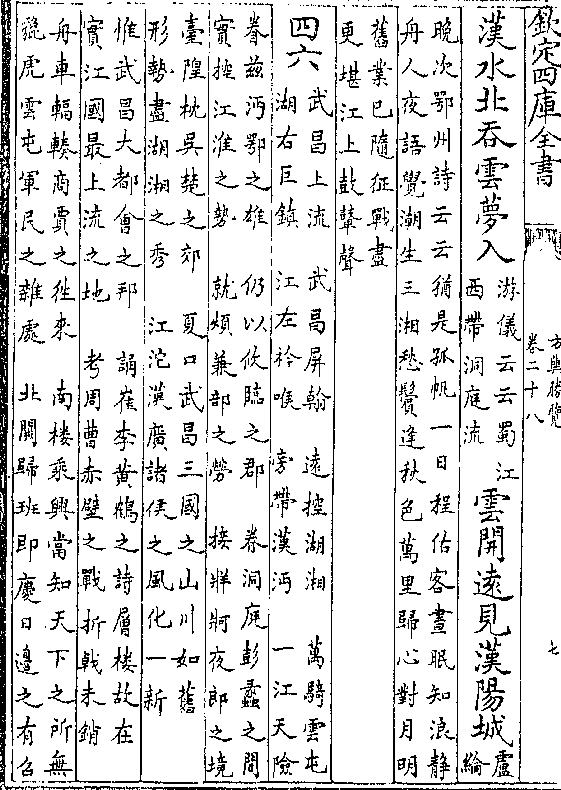 欽定四庫全書
方輿勝覽
卷二十八
七
漢水北吞雲夢入
游儀云云蜀江
西帶洞庭流
雲開遠見漢陽城
盧
綸
晚次鄂州詩云云猶是孤帆一日程估客晝眠知浪靜
舟人夜語覺潮生三湘愁鬢逢秋色萬里歸心對月明
舊業已隨征戰盡
更堪江上鼓鼙聲
四六
武昌上流　武昌屏翰　遠控湖湘　萬騎雲屯
湖右巨鎮　江左衿喉　旁帶漢沔　一江天險
眷兹沔鄂之雄　仍以攸臨之郡　卷洞庭彭蠡之間
實控江淮之勢　就煩兼部之勞　接牂牁夜郎之境
臺隍枕吳楚之郊　夏口武昌三國之山川如舊
形勢盡湖湘之秀　江沱漢廣諸侯之風化一新
惟武昌大都會之邦　誦崔李黃鶴之詩層樓故在
實江國最上流之地　考周曹赤壁之戰折戟未銷
舟車輻輳商賈之徃來　南樓乘興當知天下之所無
貔虎雲屯軍民之雜處　北闕歸班即慶日邊之有召